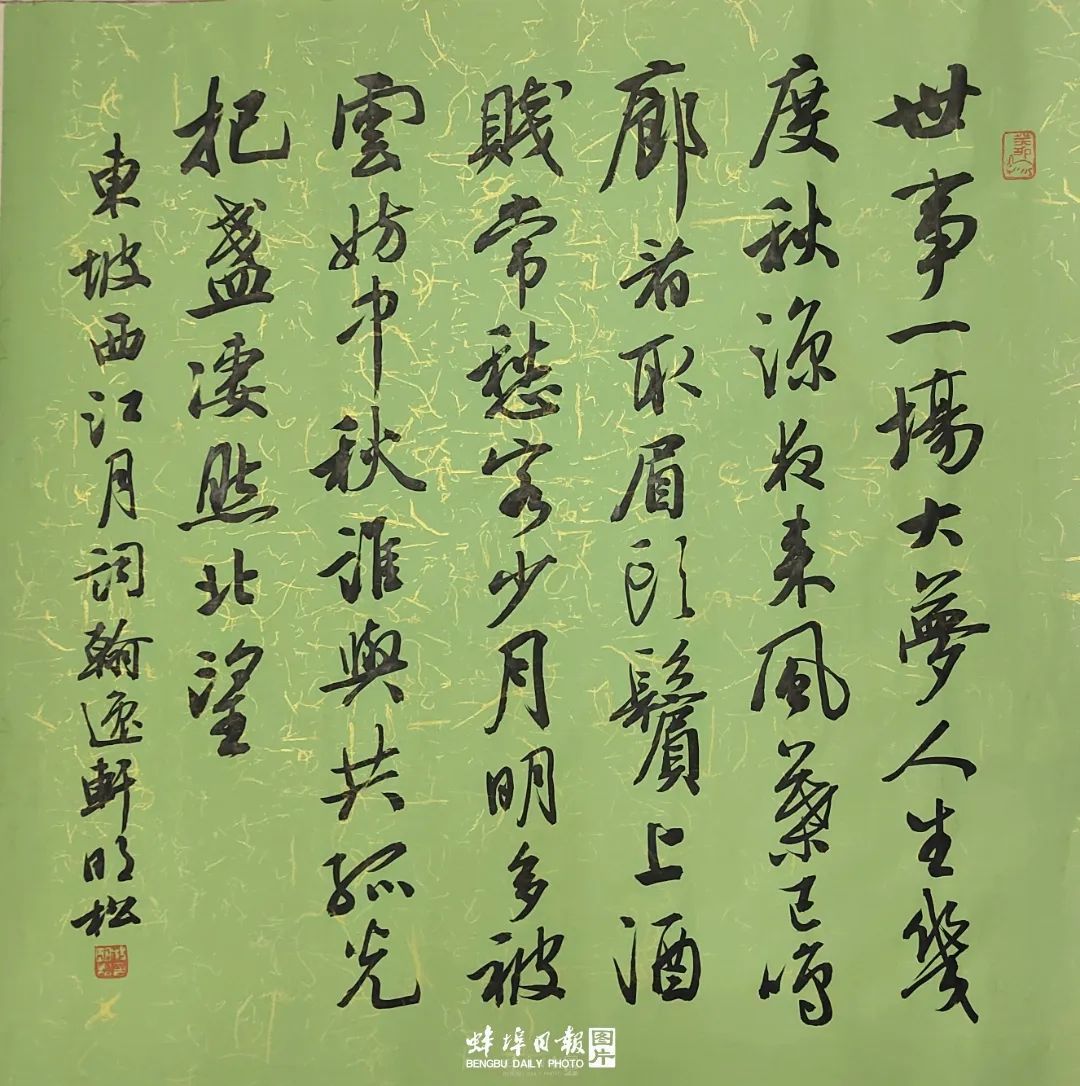 世事一場大夢人生幾
度秋涼夜来風葉已鳴
廊看取眉頭鬢上酒
賤常愁客少月明多被
雲妨中秋誰與共孤光
把盞凄然北望
東坡西江月詞翰逸軒明松
蚌埠日報 图片
BENGBU DAILY PHOTO